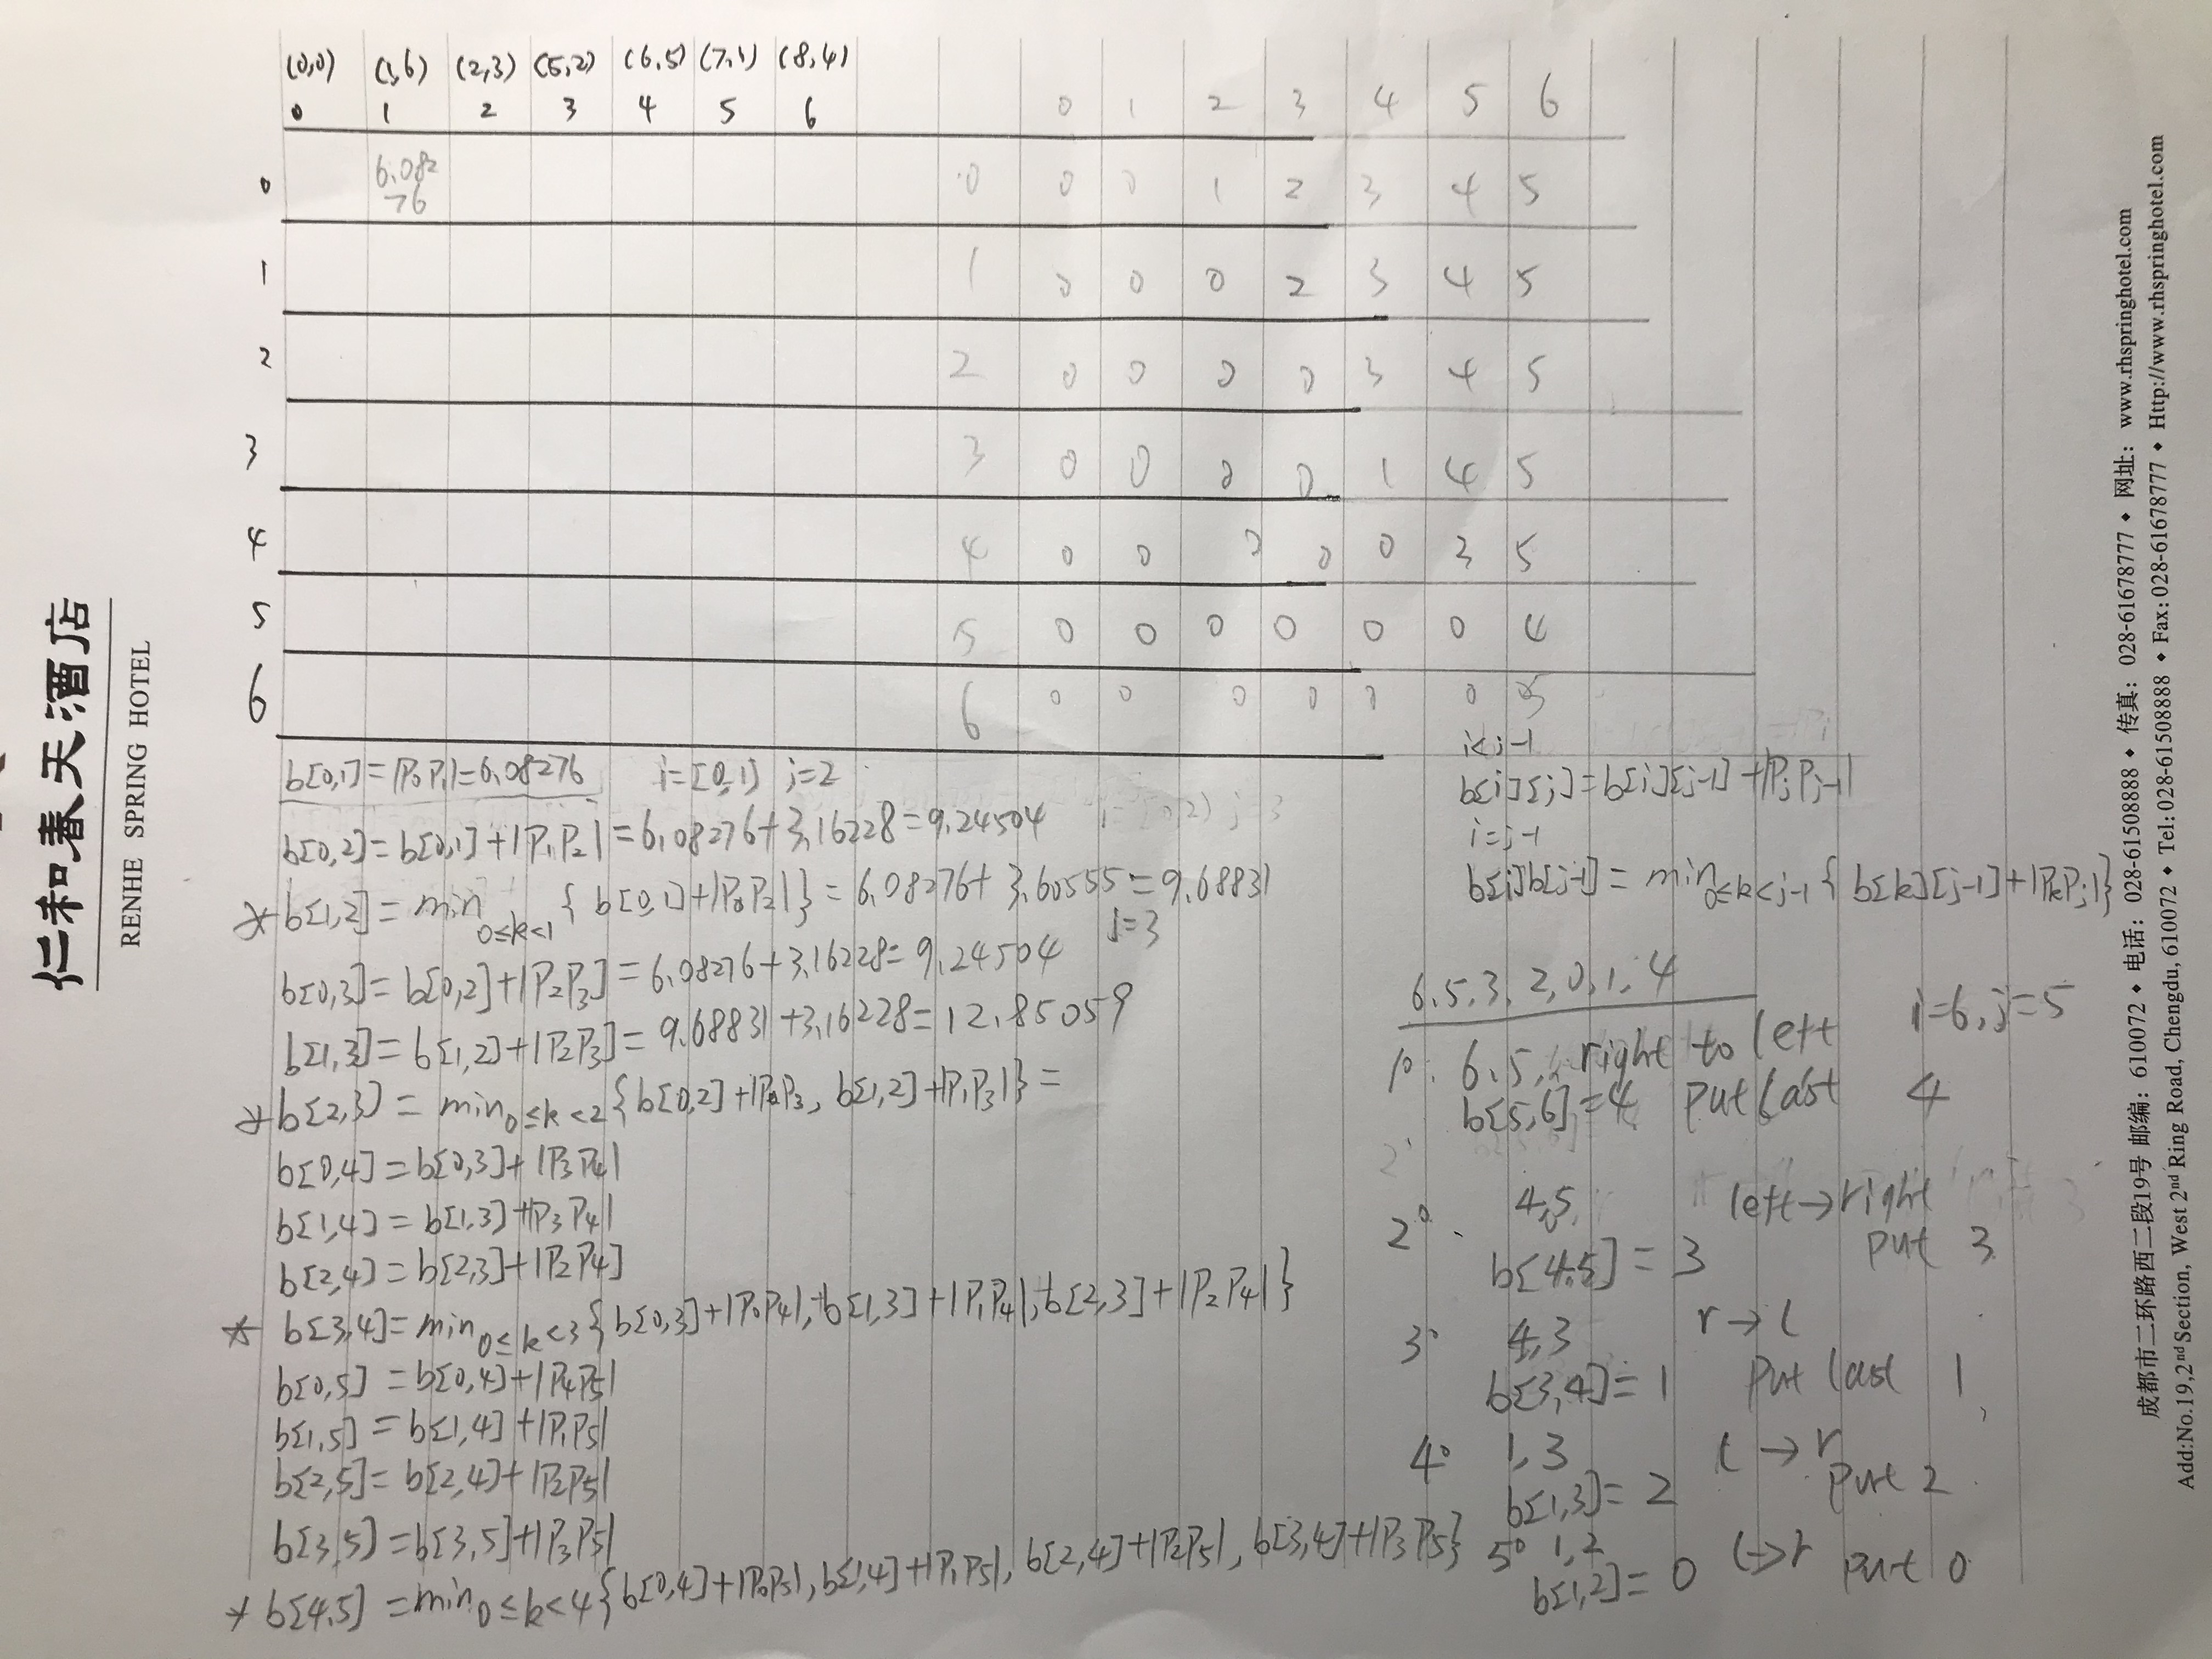 (0,0) (1,6) (2,3) (5,2) (6,5) (7,1) (8,4)
0 1 2 3 4 5 6
0 6.082
76
1
2
3
4
5
6
0 1 2 3 4 5 6
0 0 0 1 2 3 4 5
1 0 0 0 2 3 4 5
2 0 0 0 0 3 4 5
3 0 0 0 0 1 4 5
4 0 0 0 0 0 3 5
5 0 0 0 0 0 0 4
6 0 0 0 0 0 0
b[0,1]=|P0P1|=6.08276 i=[0,1) j=2
b[0,2]=b[0,1]+|P1P2|=6.08276+3.16228=9.24504 i=[0,2) j=3
* b[1,2]=min 0≤k<1 { b[0,1]+|P0P2|}=6.08276+3.60555=9.68831
j=3
b[0,3]=b[0,2]+|P2P3]=6.08276+3.16228=9.24504
b[1,3]=b[1,2]+|P2P3]=9.68831+3.16228=12.85059
* b[2,3)=min 0≤k<2{b[0,2]+|P0P3, b[1,2]+|P1P3|}=
b[0,4]=b[0,3]+|P3P4|
b[1,4]=b[1,3]+|P3P4|
b[2,4]=b[2,3]+|P2P4]
* b[3,4]=min 0≤k<3{b[0,3]+|P0P4|,b[1,3]+|P1P4|,b[2,3]+|P2P4|}
b[0,5]=b[0,4]+|P4P5|
b[1,5]=b[1,4]+|P1P5|
b[2,5]=b[2,4]+|P2P5|
b[3,5)=b[3,5]+|P3P5|
* b[4,5]=min 0≤k<4{b[0,4]+|P0P5|,b[1,4]+|P1P5|,b[2,4]+|P2P5|,b[3,4]+|P3P5}
i<j-1
b[i][j]=b[i][j-1]+|PjPj-1|
i=j-1
b[i]b[j-1]=min 0≤k<j-1{ b[k][j-1]+|PkPj|}
6,5,3,2,0,1,4
1° 6,5, right to left i=6,j=5
b[5,6]=4 put last 4
2° 4,5 left→right
b[4,5]=3 put 3
3° 4,3 r→l
b[3,4]=1 put last 1
4° 1,3 l→r
b[1,3]=2 put 2
5° 1,2 l→r put 0
b[1,2]=0
仁和春天酒店
RENHE SPRING HOTEL
成都市二环路西二段19号 邮编：610072 ◆ 电话：028-61508888 ◆ 传真：028-61678777 ◆ 网址：www.rhspringhotel.com
Add:No.19,2nd Section, West 2nd Ring Road, Chengdu, 610072 ◆ Tel:028-61508888 ◆ Fax:028-61678777 ◆ Http://www.rhspringhotel.com